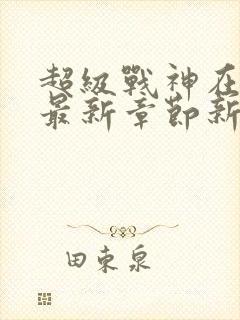 超級戰神在
最新章節新
田東泉